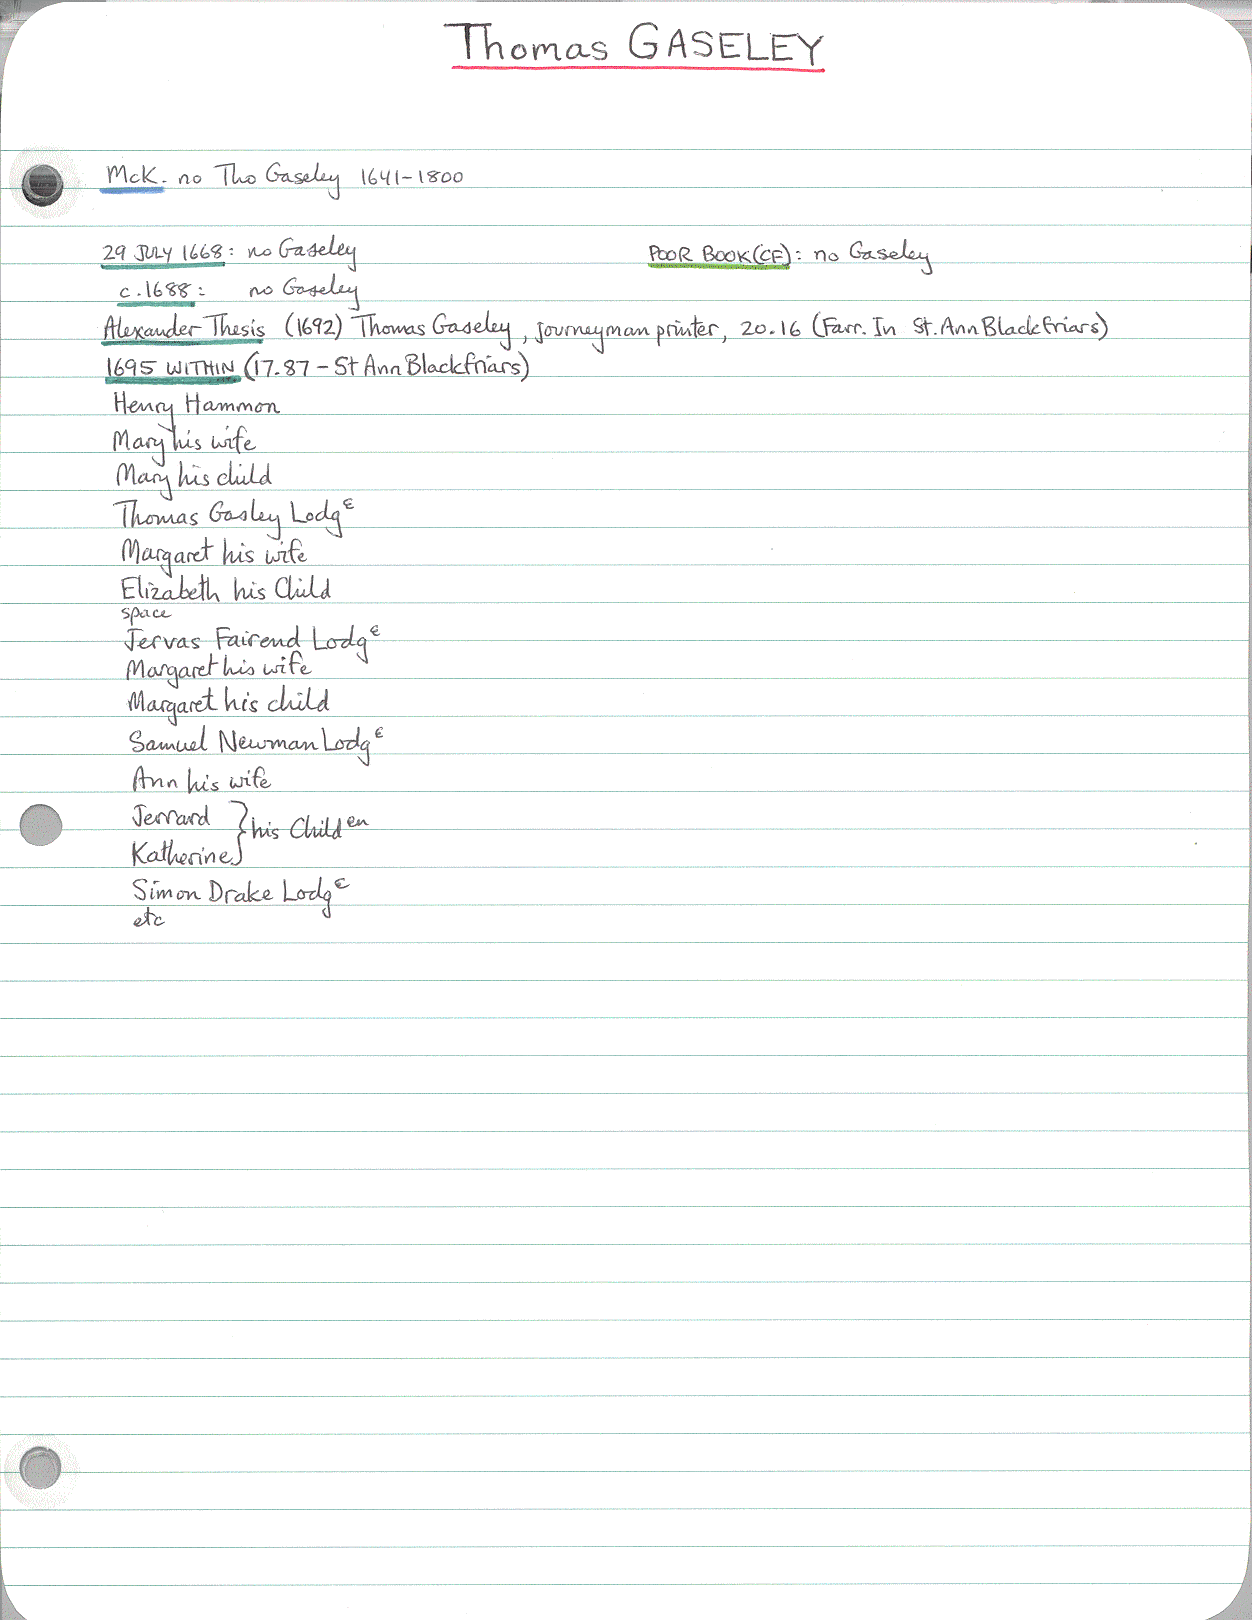 Thomas GASELEY
McK. no Tho Gaseley 1641-1800
29 JULY 1668: no Gaseley
POOR BOOK (CF): no Gaseley
c.1688: no Gaseley
Alexander Thesis (1692) Thomas Gaseley, journeyman printer, 20.16 (Farr. In St. Ann Blackfriars)
1695 WITHIN (17.87 - St Ann Blackfriars)
Henry Hammon
Mary his wife
Mary his child
Thomas Gasley Lodgᵋ
Margaret his wife
Elizabeth his Child
space
Jervas Fairend Lodgᵋ
Margaret his wife
Margaret his child
Samuel Newman Lodgᵋ
Ann his wife
Jerrard } his Childᵉⁿ
Katherine
Simon Drake Lodgᵋ
etc